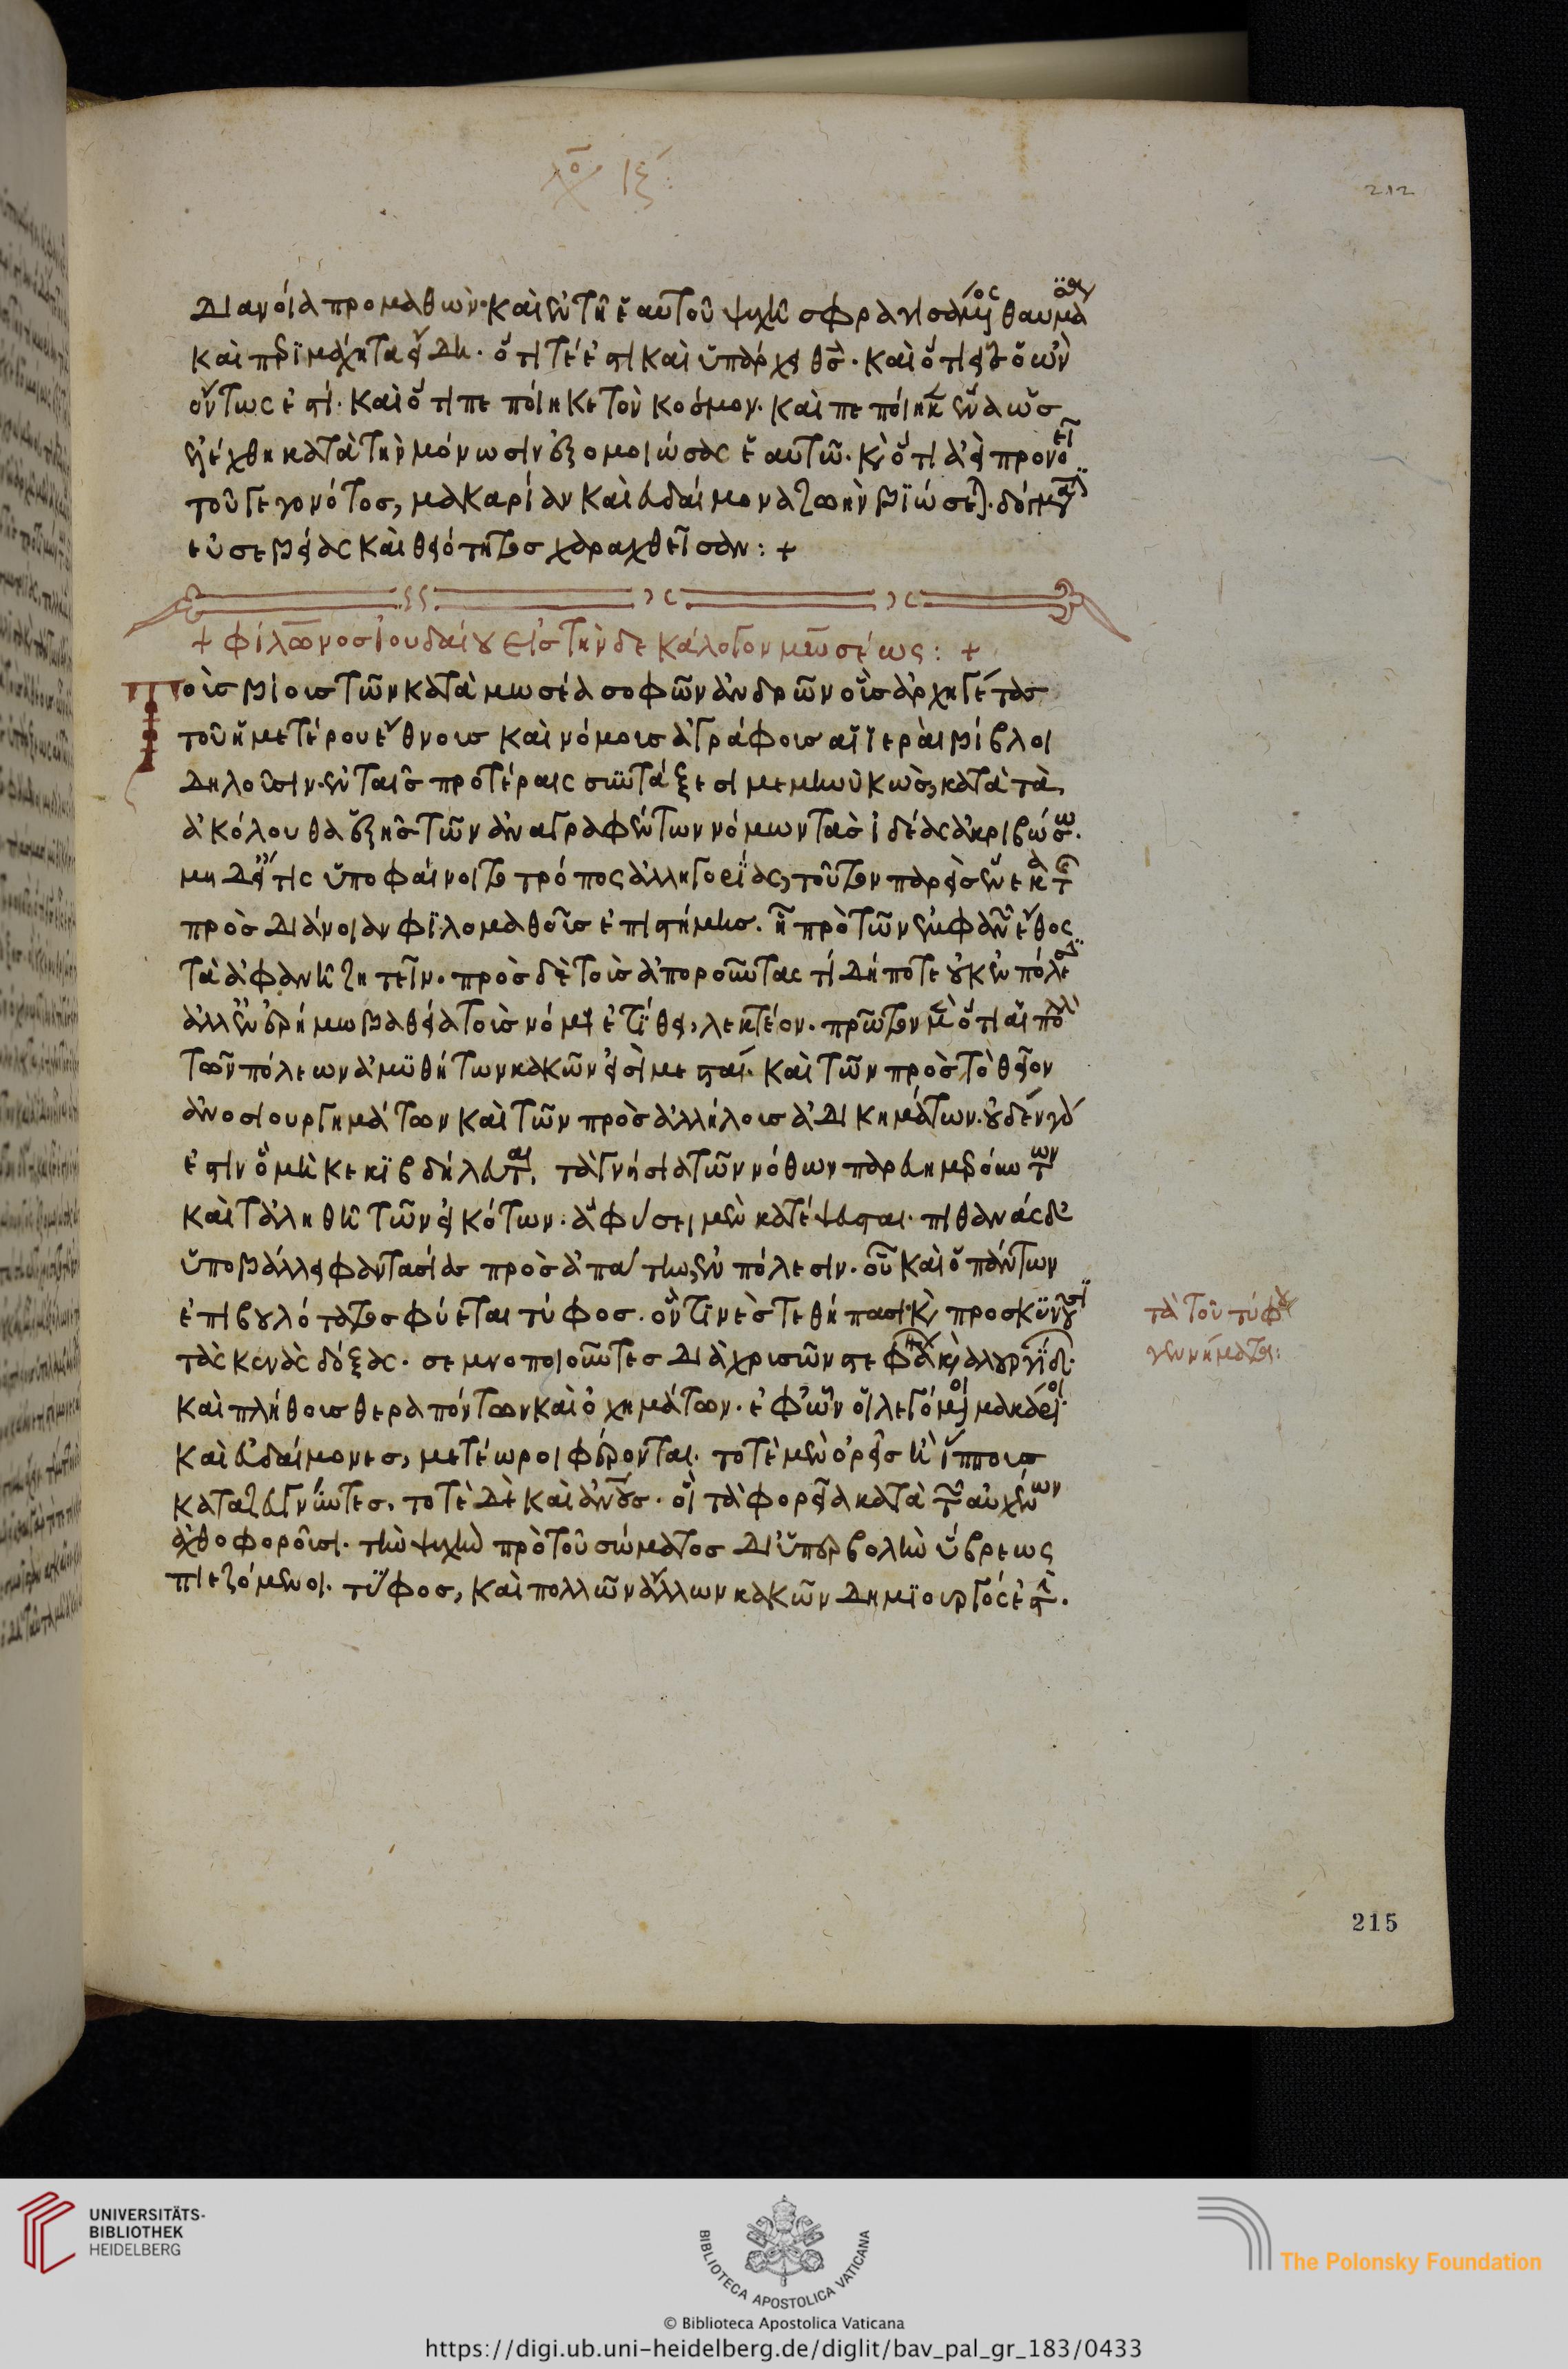 212
διανοίᾳ προμαθὼν· καὶ ἐν τῇ ἑαυτοῦ ψυχῇ σφραγισάμενος θαυμάσια
καὶ περιμάχητα εἴδη· ὅτι τέ ἐστι καὶ ὑπάρχει θεός· καὶ ὅτι εἷς ὁ ὢν
ὄντως ἐστί· καὶ ὅτι πεποίηκε τὸν κόσμον· καὶ πεποίηκεν ἕνα ὡς
ἐλέχθη κατὰ τὴν μόνωσιν ἐξομοιώσας ἑαυτῷ· καὶ ὅτι ἀεὶ προνοεῖ
τοῦ γεγονότος, μακαρίαν καὶ εὐδαίμονα ζωὴν βιώσεται· δόγμασιν
εὐσεβείας καὶ θειότητος χαραχθεῖσαν: +
+ φίλωνος ἰουδαίου εἰς τὴν δεκάλογον μωσέως: +
Τοὺς βίους τῶν κατὰ μωσέα σοφῶν ἀνδρῶν οὓς ἀρχηγέτας
τοῦ ἡμετέρου ἔθνους καὶ νόμους ἀγράφους αἱ ἱεραὶ βίβλοι
δηλοῦσιν· ἐν ταῖς προτέραις συντάξεσι μεμηνυκὼς, κατὰ τὰ
ἀκόλουθα ἑξῆς τῶν ἀναγραφέντων νόμων τὰς ἰδέας ἀκριβώσω·
μηδ' εἴ τις ὑποφαίνοιτο τρόπος ἀλληγορίας, τοῦτον παρεὶς ἕνεκα τῆς
πρὸς διάνοιαν φιλομαθοῦς ἐπιστήμης· ᾗ πρὸ τῶν ἐμφανῶν ἔθος
τὰ ἀφανῆ ζητεῖν· πρὸς δὲ τοὺς ἀποροῦντας τί δήποτε οὐκ ἐν πόλεσιν
ἀλλ' ἐν ἐρήμῳ βαθείᾳ τοὺς νόμους ἐτίθει, λεκτέον· πρῶτον μὲν ὅτι αἱ πολλαὶ
τῶν πόλεων ἀμυθήτων κακῶν εἰσὶ μεσταί· καὶ τῶν πρὸς τὸ θεῖον
ἀνοσιουργημάτων καὶ τῶν πρὸς ἀλλήλους ἀδικημάτων· οὐδὲν γάρ
ἐστιν ὃ μὴ κεκιβδήλευται, τὰ γνήσια τῶν νόθων παρευημερούντων
καὶ τἀληθῆ τῶν εἰκότων· ἃ φύσει μὲν κατέψευσται· πιθανὰς δὲ
ὑποβάλλει φαντασίας πρὸς ἀπάτην, ἐν πόλεσιν· οὗ καὶ ὁ πάντων
ἐπιβουλότατος φύεται τύφος· ὅν τινες τεθήπασι καὶ προσκυνοῦσι
τὰς κενὰς δόξας· σεμνοποιοῦντες διὰ χρυσῶν στεφάνων καὶ ἁλουργίδων·
καὶ πλήθους θεραπόντων καὶ ὀχημάτων· ἐφ' ὧν οἱ λεγόμενοι μακάριοι
καὶ εὐδαίμονες, μετέωροι φέρονται· τοτὲ μὲν ὀρεῖς ἢ ἵππους
καταζευγνύντες, τοτὲ δὲ καὶ ἀνθρώπους· οἳ τὰ φορεῖα κατὰ τῶν αὐχένων
ἀχθοφοροῦσι· τὴν ψυχὴν πρὸ τοῦ σώματος δι' ὑπερβολὴν ὕβρεως
πιεζόμενοι· τῦφος, καὶ πολλῶν ἄλλων κακῶν δημιουργός ἐστιν.
τὰ τοῦ τύφου
γεννήματα:
215
UNIVERSITÄTS-
BIBLIOTHEK
HEIDELBERG
BIBLIOTECA APOSTOLICA VATICANA
The Polonsky Foundation
© Biblioteca Apostolica Vaticana
https://digi.ub.uni-heidelberg.de/diglit/bav_pal_gr_183/0433